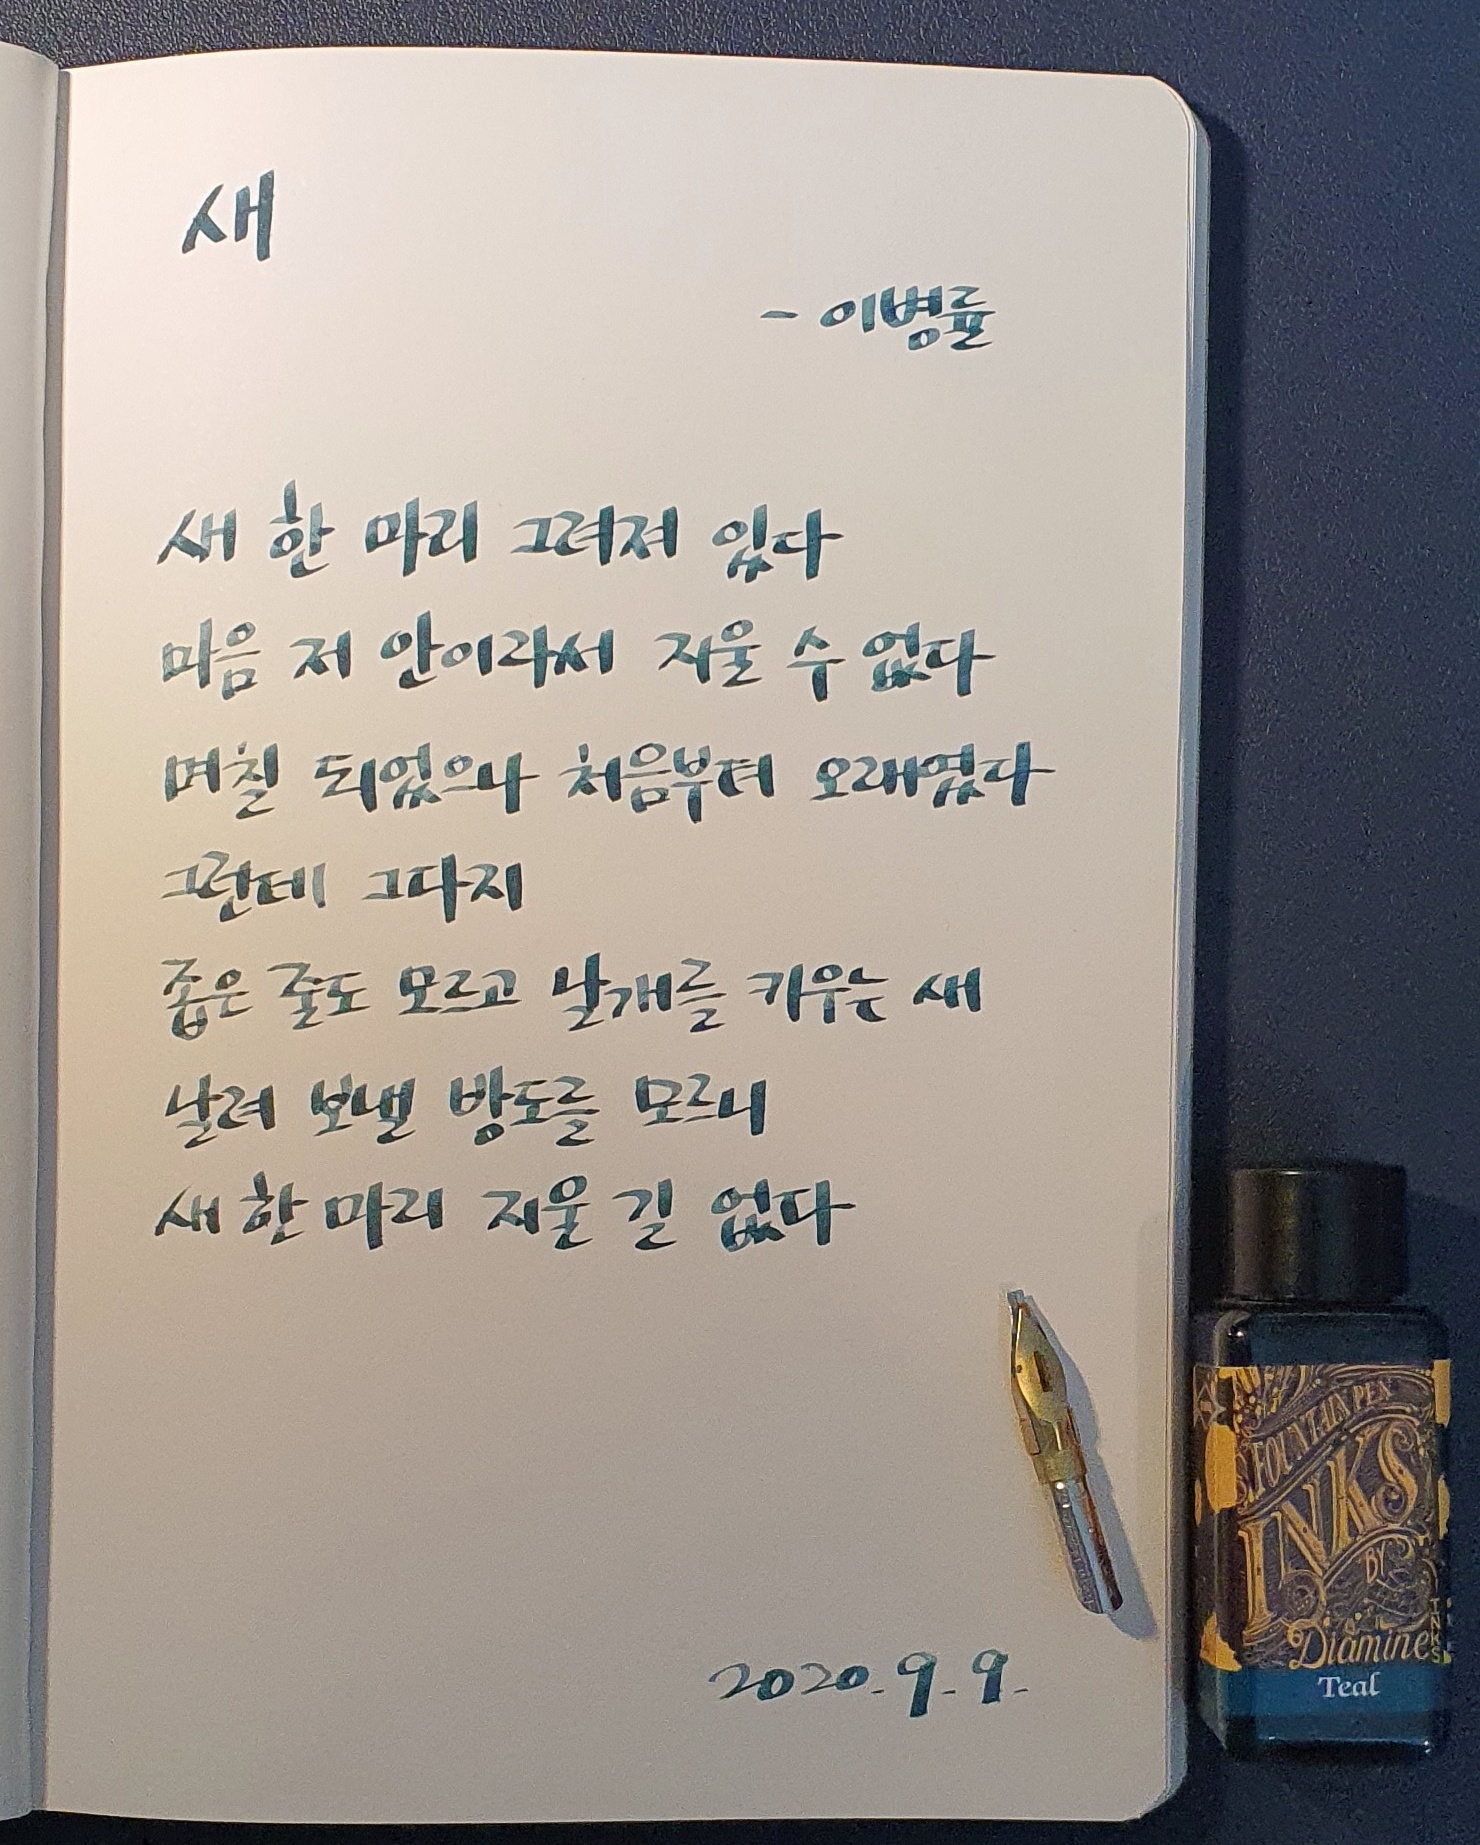 새
- 이병률
새 한 마리 그려져 있다
마음 저 안이라서 지울 수 없다
며칠 되었으나 처음부터 오래였다
그런데 그다지
좁은 줄도 모르고 날개를 키우는 새
날려 보낼 방도를 모르니
새 한 마리 지울 길 없다
2020. 9. 9.
FOUNTAIN PEN
INKS
BY
Diamine
Teal